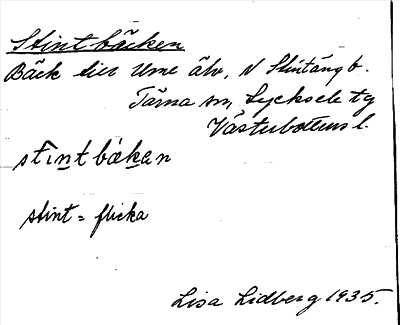 Stintbäcken
Bäck till Ume älv, N Stintängb.
Tärna sn, Lycksele tg
Västerbottens l.
stintbäkan
stint = flicka
Lisa Lidberg 1935.